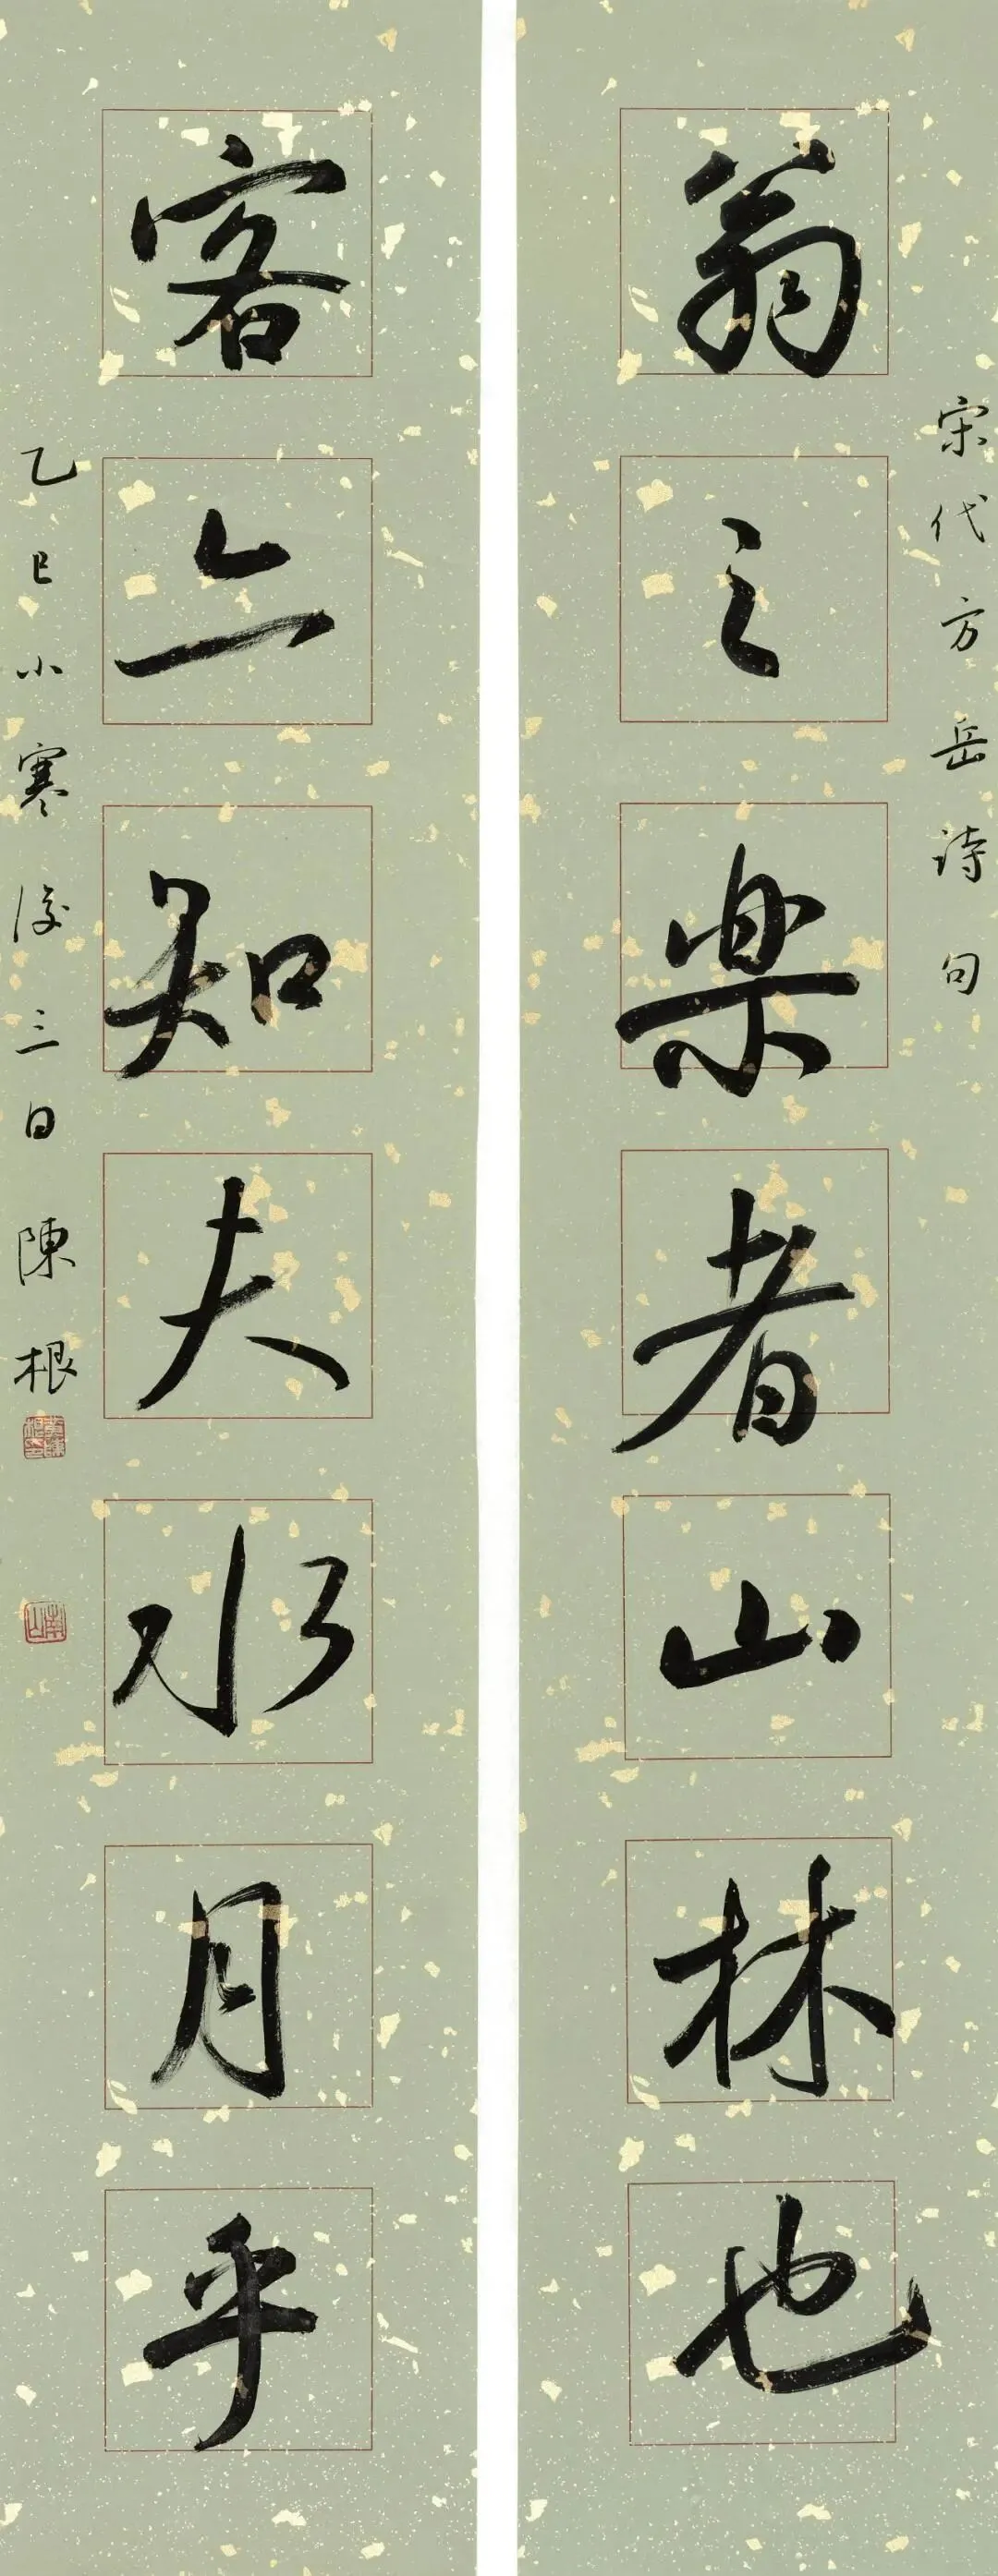 宋代方岳诗句
翁之楽者山林也
客亦知夫水月乎
乙巳小寒後三日陳根
南山